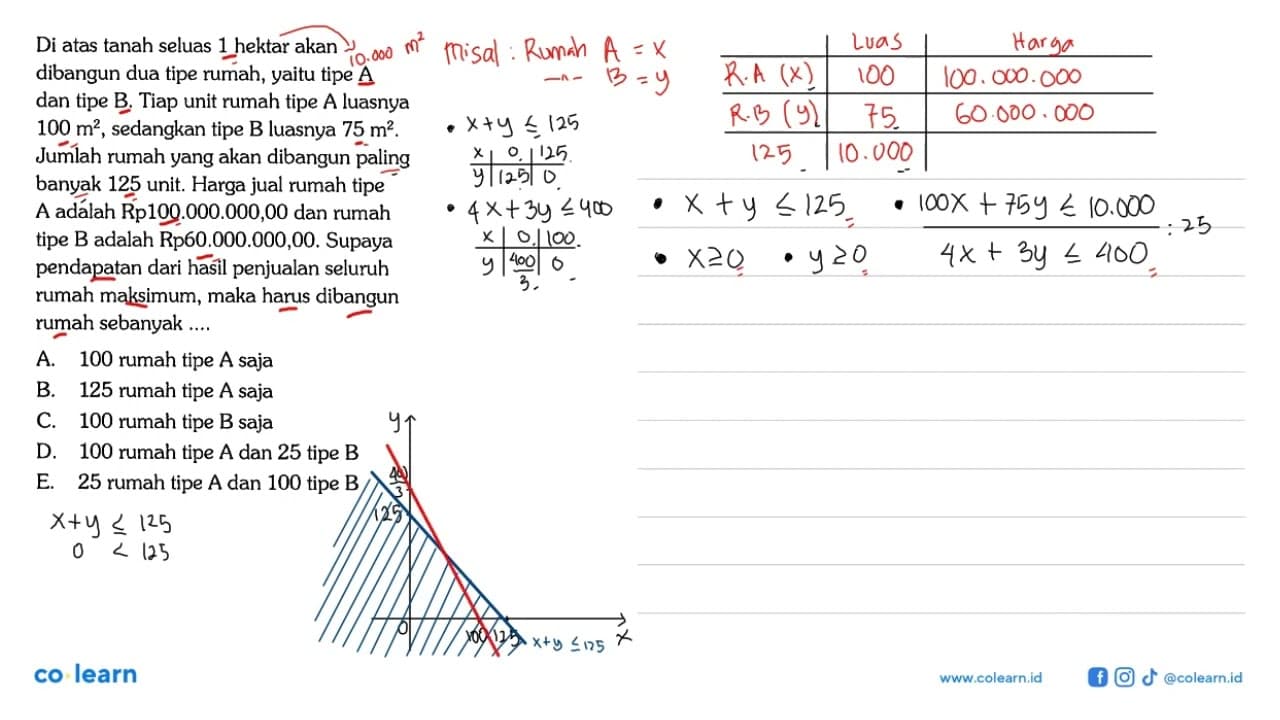 Di atas tanah seluas 1 hektar akan
10.000 m²
dibangun dua tipe rumah, yaitu tipe A
dan tipe B. Tiap unit rumah tipe A luasnya
100 m², sedangkan tipe B luasnya 75 m².
Jumlah rumah yang akan dibangun paling
banyak 125 unit. Harga jual rumah tipe
A adalah Rp100.000.000,00 dan rumah
tipe B adalah Rp60.000.000,00. Supaya
pendapatan dari hasil penjualan seluruh
rumah maksimum, maka harus dibangun
rumah sebanyak ....
A. 100 rumah tipe A saja
B. 125 rumah tipe A saja
C. 100 rumah tipe B saja
D. 100 rumah tipe A dan 25 tipe B
E. 25 rumah tipe A dan 100 tipe B
x+y ≤ 125
0 < 125
Misal : Rumah A = x
-"- B = y
• x+y ≤ 125
x 0 125
y 125 0
• 4x+3y ≤ 400
x 0 100
y 400/3 0
Luas Harga
R.A (x) 100 100.000.000
R.B (y) 75 60.000.000
125 10.000
• x + y ≤ 125 • 100x + 75y ≤ 10.000 : 25
• x≥0 • y≥0 4x + 3y ≤ 400
y
400/3
125
0 100 125 x+y ≤125 x
co learn
www.colearn.id @colearn.id